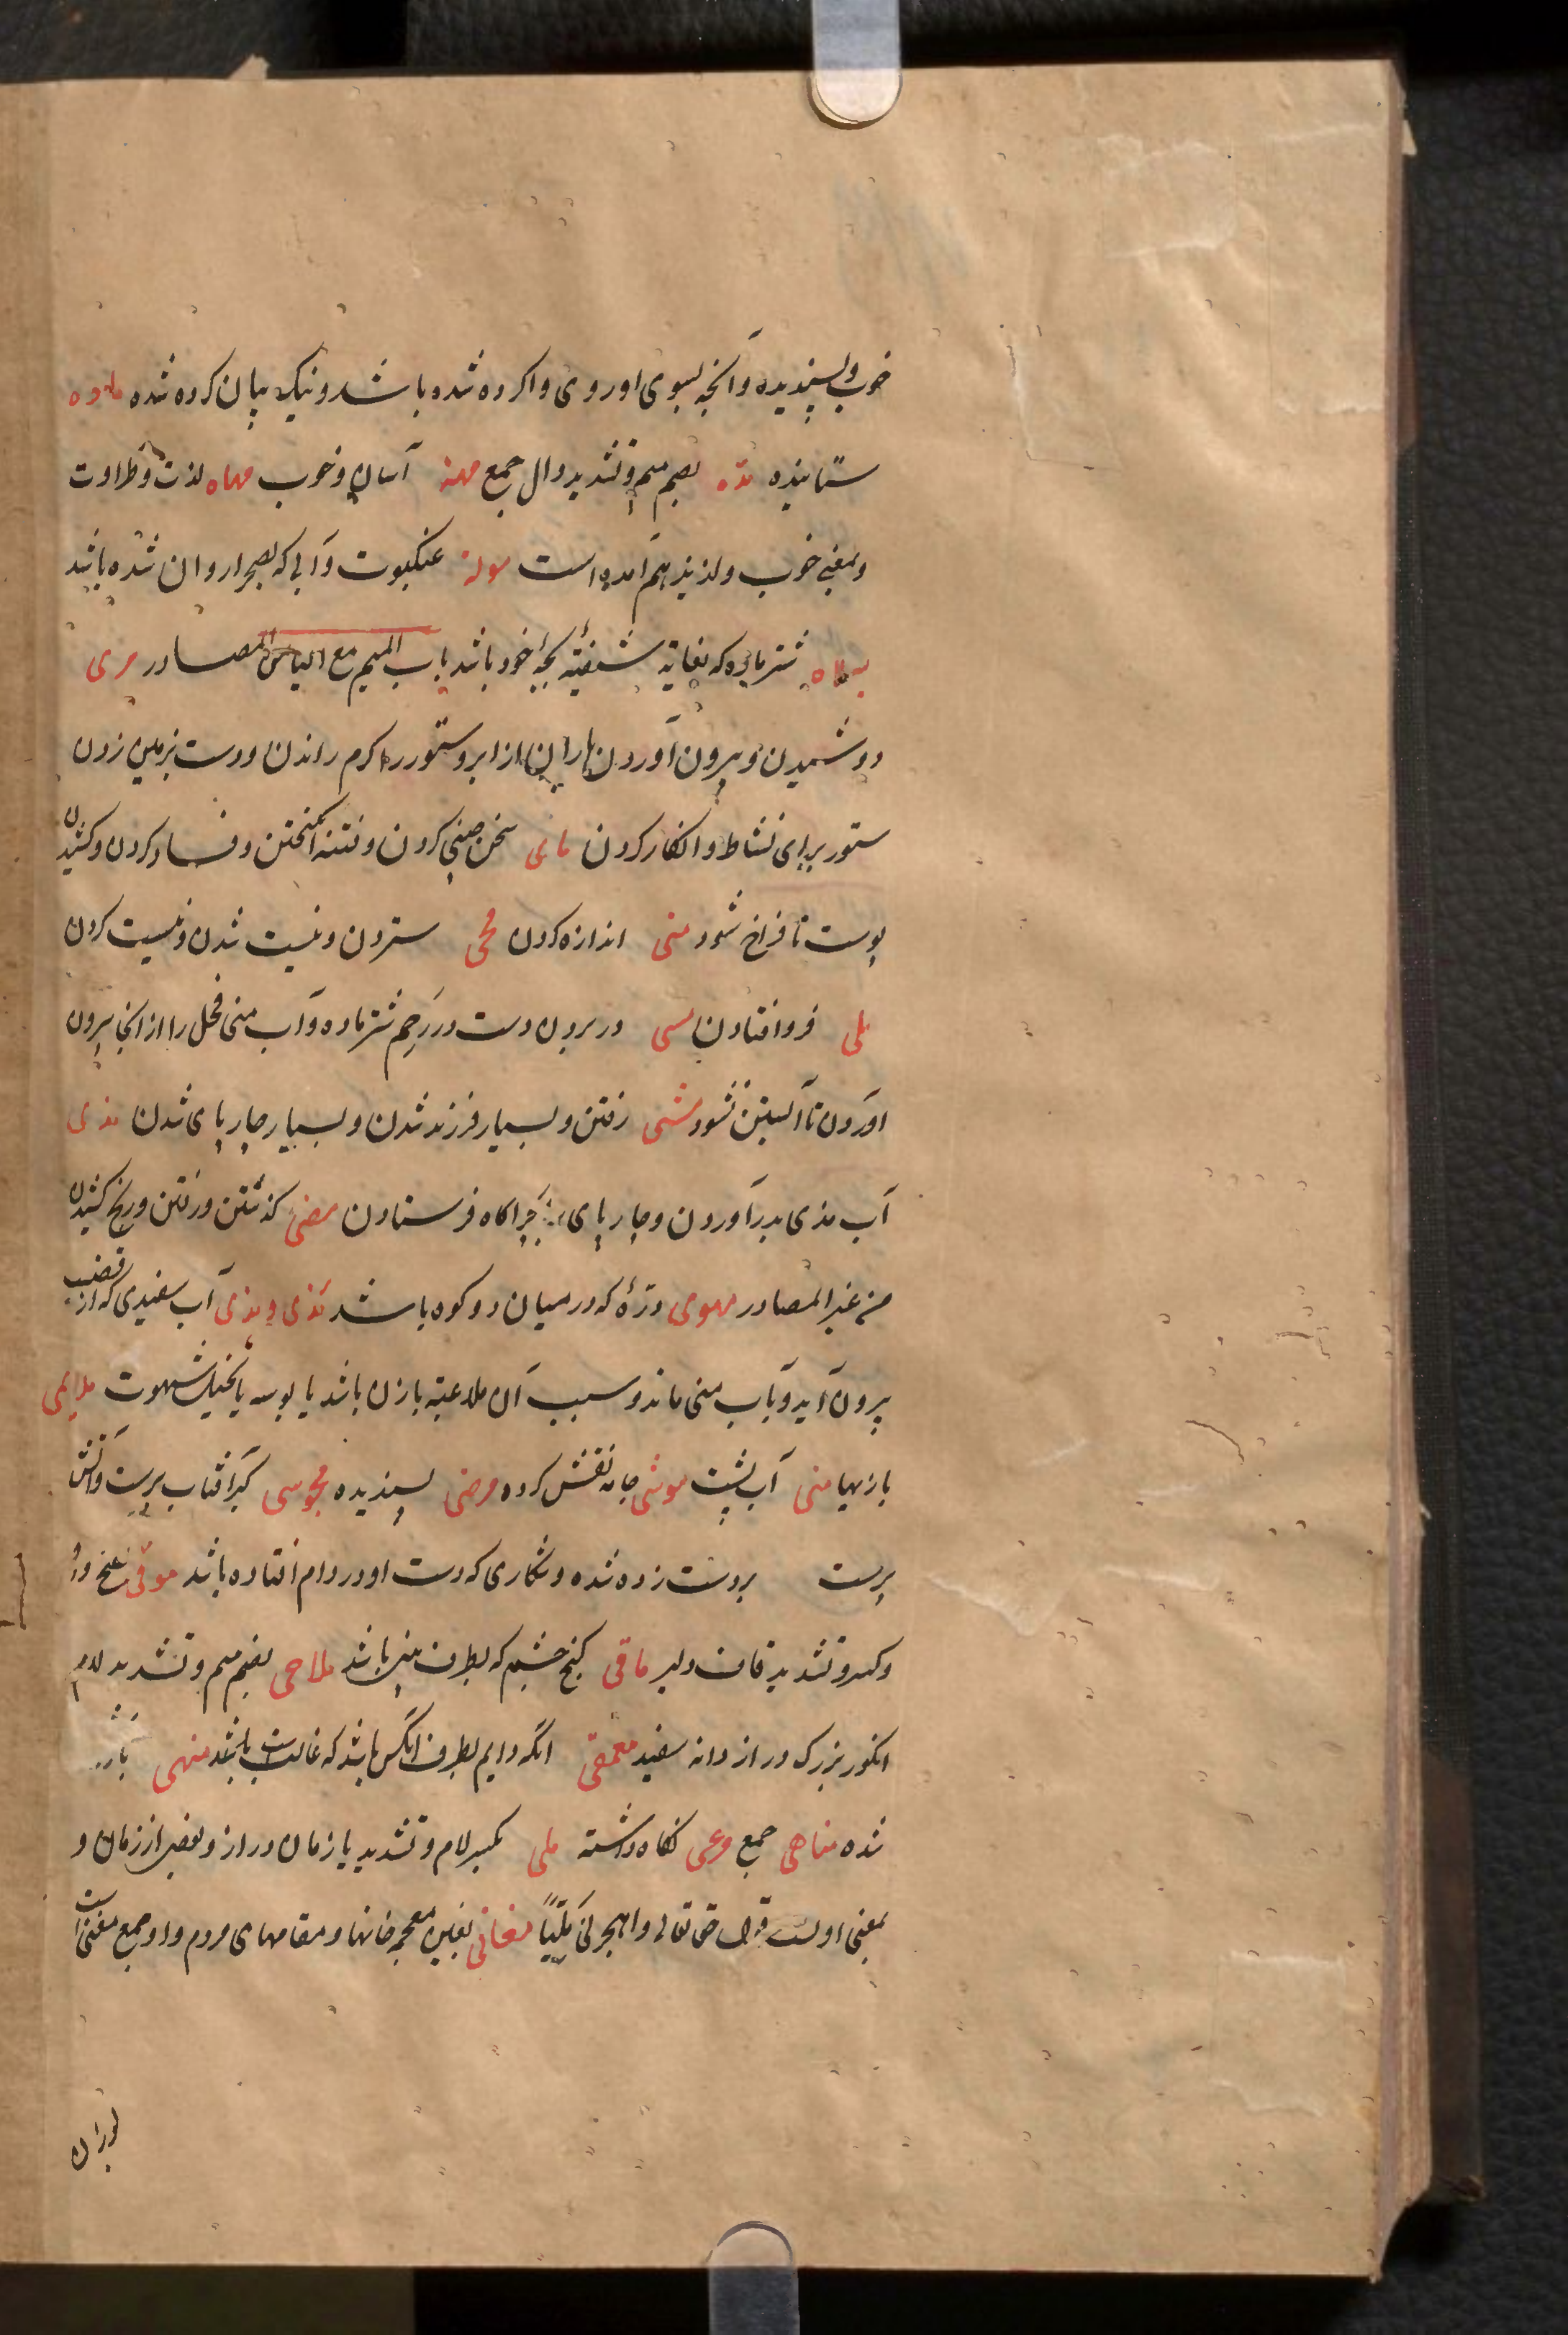 خوب و پسندیده و آنچه بسوی او روی واکرده شده باشد و نیک بیان کرده شده ماده
ستاینده مده بضم میم و تشدید دال جمع مهنه آسان و خوب مهاه لذت و طراوت
و بمعنی خوب و لذیذ هم آمده است موله عنکبوت و آبی که بصحرا روان شده باشد
میلاه شتر ماده که بغایت شیفته بچه خود باشد باب المیم مع الیاء من المصادر مری
دوشیدن و بیرون آوردن باران از ابر و ستور را گرم راندن و دست بزمین زدن
ستور برای نشاط و انکار کردن مای سخن چینی کردن و فتنه انگیختن و فساد کردن و کشیدن
پوست تا فراخ شود منی اندازه کردن محی ستردن و نیست شدن و نیست کردن
ملی فرو افتادن مسی در بردن دست در رحم شتر ماده و آب منی فحل را از آنجا بیرون
آوردن تا آبستن نشود مشی رفتن و بسیار فرزند شدن و بسیار چارپای شدن مذی
آب مذی بدر آوردن و چارپای بچراگاه فرستادن مضی گذشتن و رفتن و رنج کشیدن
من غیر المصادر مهوی دره که در میان دو کوه باشد مذی و مذی آب سفیدی که از قضیب
بیرون آید و بآب منی ماند و سبب آن ملاعبه با زن باشد یا بوسه یا تخیل شهوت ملاهی
بازیها منی آب پشت موشی جامه نقش کرده مرضی پسندیده مجوسی گبر آفتاب پرست و آتش
پرست بر دست زده شده و شکاری که دست او در دام افتاده باشد موقی بفتح واو
و کسر و تشدید قاف دلیر ماقی کنج چشم که بطرف بینی باشد ملاحی بضم میم و تشدید لام
انگور بزرگ دراز دانه سفید معمقی آنکه دایم بطرف آنکس باشد که غالب باشد منهی
شده مناهی جمع وعی نگاه داشته ملی بکسر لام و تشدید یا زمان دراز و بعضی از زمان و
بمعنی اولست قول حق تعالی واهجرنی ملیّاً مغانی بغین معجمه خانها و مقامهای مردم و او جمع مغنی است